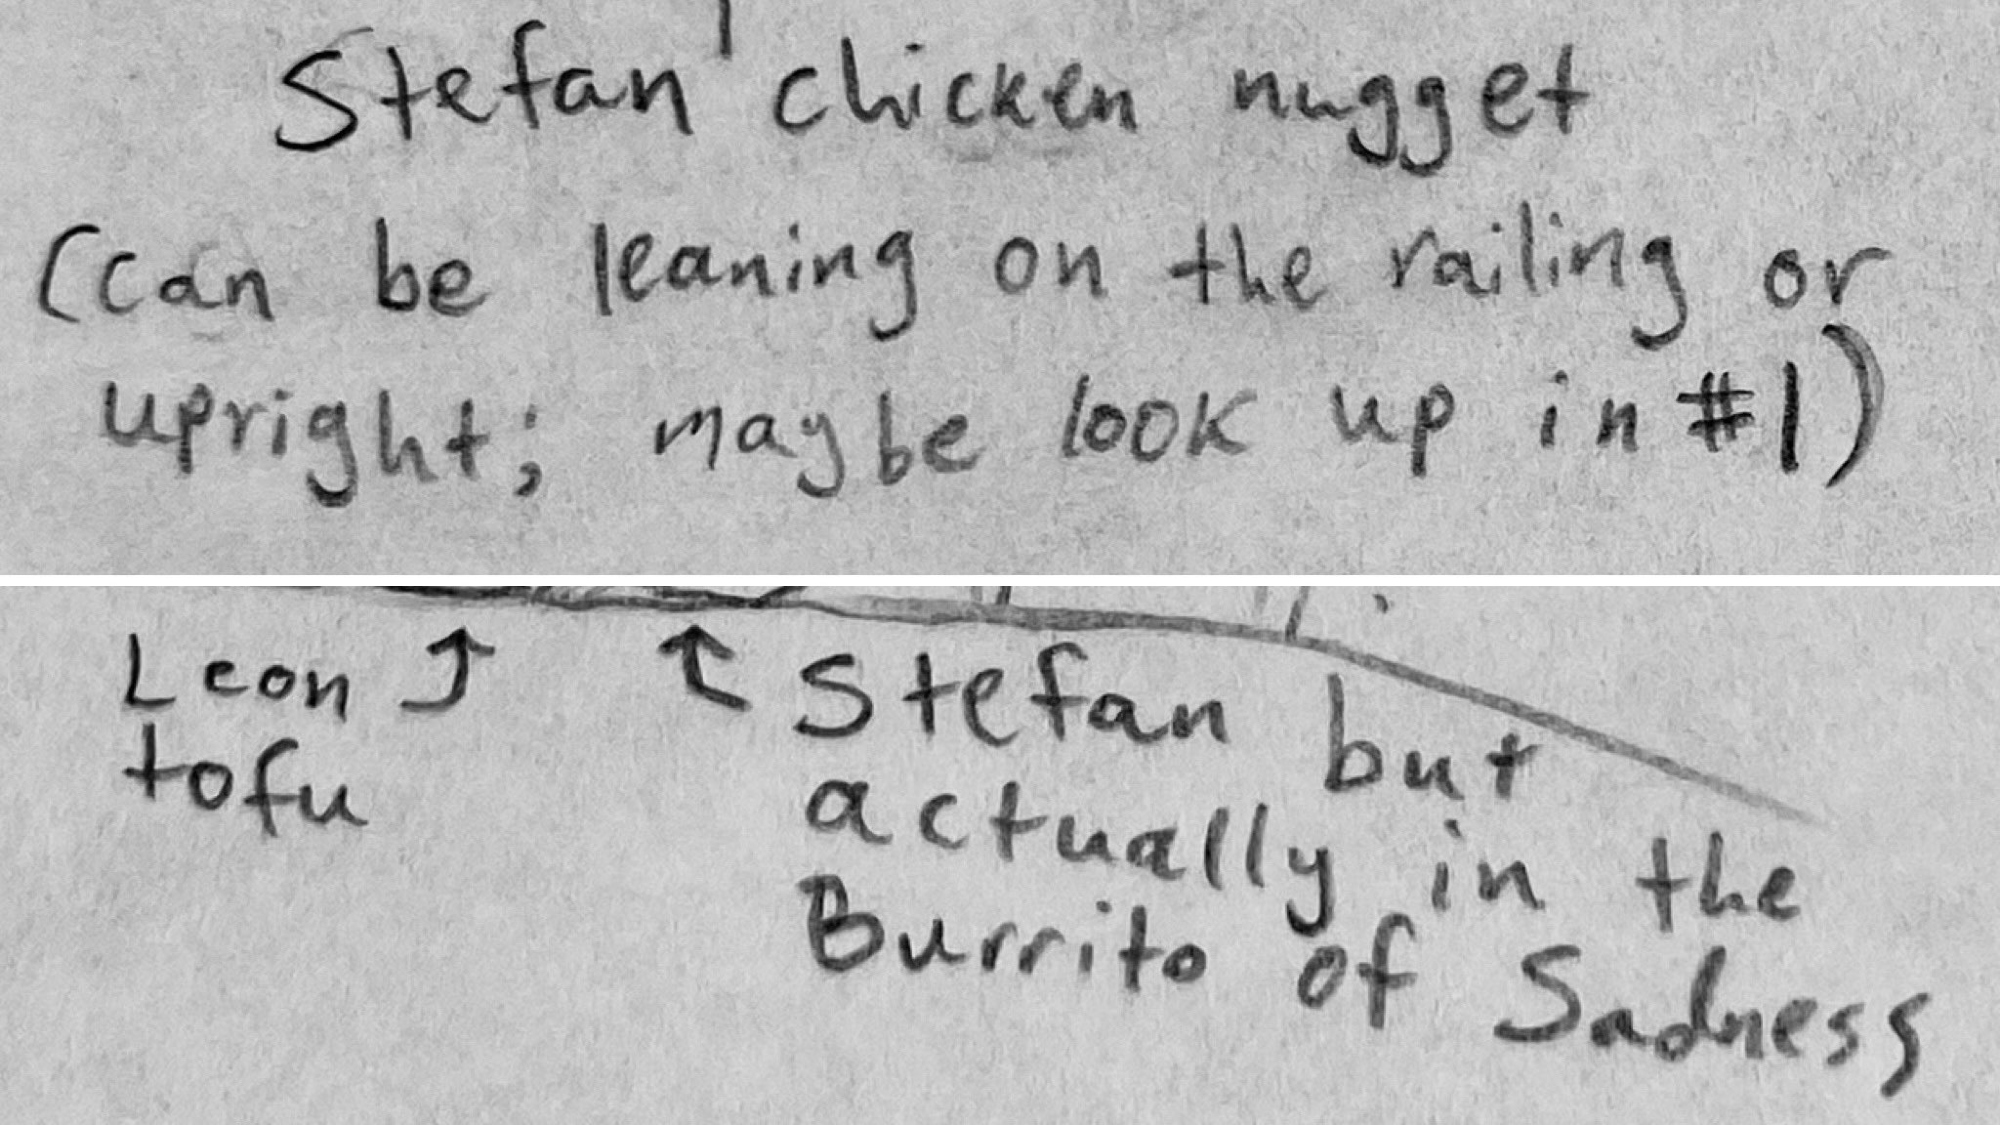 Stefan chicken nugget
(can be leaning on the railing or
upright; maybe look up in #1)
Leon
tofu
Stefan but
actually in the
Burrito of Sadness